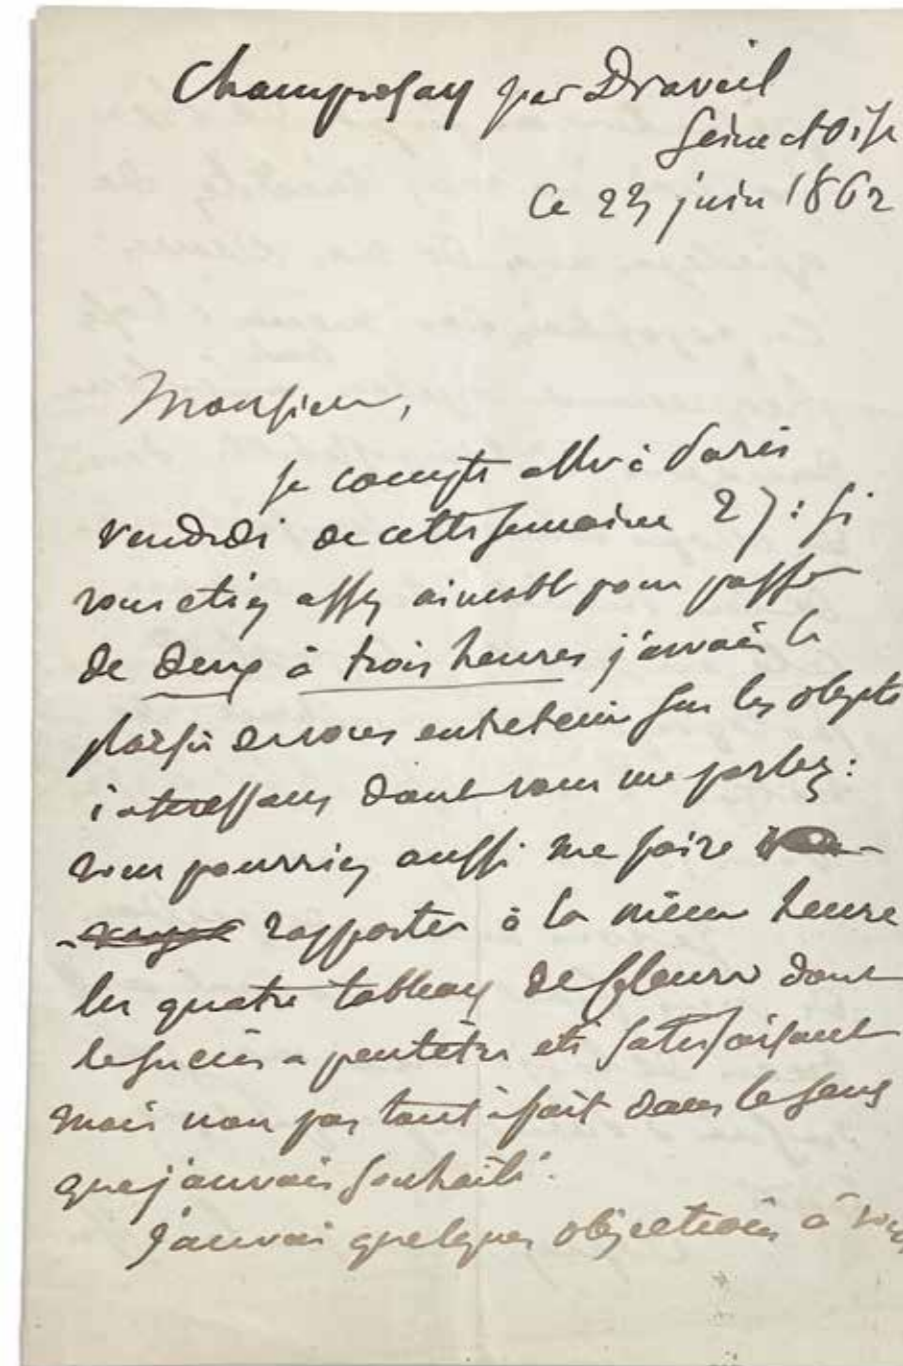 Champrosay par Draveil
Seine et Oise
Ce 23 juin 1862
Monsieur,
je compte aller à Paris
vendredi de cette semaine 27 : si
vous etiez assez aimable pour passer
de deux à trois heures j'aurais le
plaisir de vous entretenir sur les objets
interessans dont vous me parlez :
vous pourriez aussi me faire
rapporter à la même heure
les quatre tableaux de fleurs dont
le succès a peutêtre eté satisfaisant
mais non pas tout à fait dans le sens
que j'aurais souhaité.
J'aurai quelques objections à vous